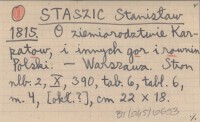 STASZIC Stanisław
1815. O ziemiorodztwie Kar-
patow, i innych gor i rownin
Polski. - Warszawa. Stron
nlb. 2, X, 390, tab. 6, tabl. 6,
m. 4, [okł.?], cm 22 x 18.